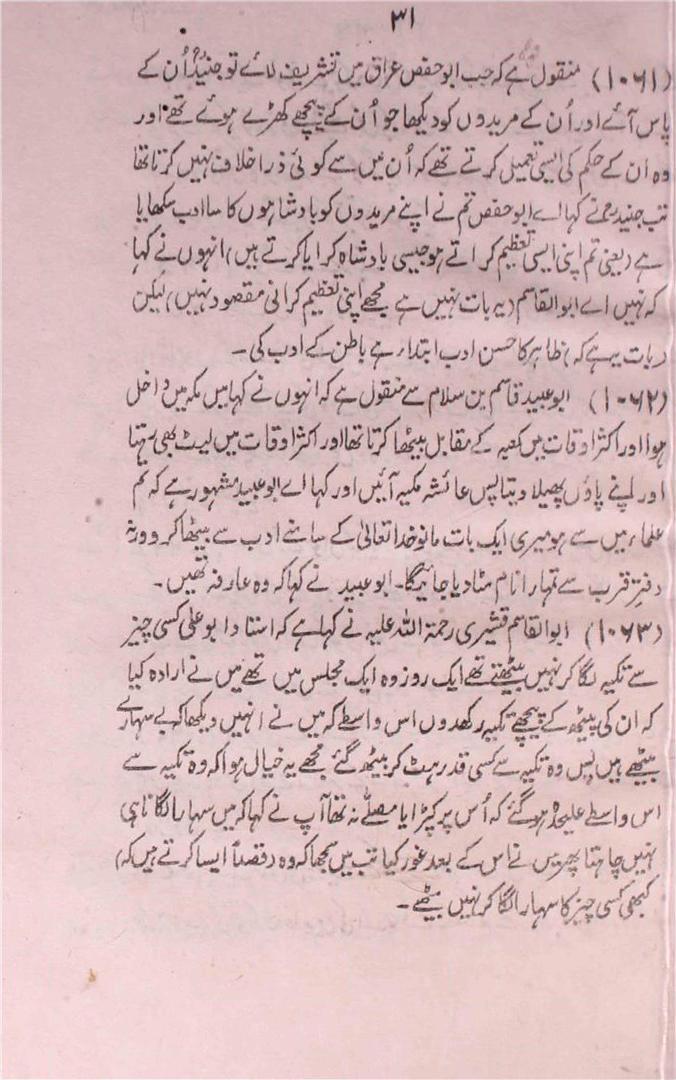 ۳۱
(۱۰۶۱) منقول ہے کہ جب ابو حفص عراق میں تشریف لائے تو جنیدؒ اُن کے
پاس آئے اور اُن کے مریدوں کو دیکھا جو اُن کے پیچھے کھڑے ہوئے تھے اور
وہ ان کے حکم کی ایسی تعمیل کرتے تھے کہ اُن میں سے کوئی ذرا خلاف نہیں کرتا تھا
تب جنیدؒ نے کہا اے ابو حفص تم نے اپنے مریدوں کو بادشاہوں کا سا ادب سکھایا
ہے (یعنی تم اپنی ایسی تعظیم کراتے ہو جیسی بادشاہ کرایا کرتے ہیں) انہوں نے کہا
کہ نہیں اے ابوالقاسم (یہ بات نہیں ہے مجھے اپنی تعظیم کرانی مقصود نہیں) لیکن
(بات یہ ہے کہ) ظاہر کا حسن ادب ابتداء ہے باطن کے ادب کی ۔
(۱۰۶۲) ابو عبید قاسم بن سلام سے منقول ہے کہ انہوں نے کہا میں مکہ میں داخل
ہوا اور اکثر اوقات میں کعبہ کے مقابل بیٹھا کرتا تھا اور اکثر اوقات میں لیٹ بھی رہتا
اور اپنے پاؤں پھیلا دیتا پس عائشہ مکیہ آئیں اور کہا اے ابو عبید مشہور ہے کہ تم
علماء میں سے ہو میری ایک بات مانو خدا تعالیٰ کے سامنے ادب سے بیٹھا کرو ورنہ
دفتر قرب سے تمہارا نام مٹا دیا جائیگا۔ ابو عبید نے کہا کہ وہ عارفہ تھیں ۔
(۱۰۶۳) ابوالقاسم قشیری رحمۃ اللہ علیہ نے کہا ہے کہ استاد ابو علی کسی چیز
سے تکیہ لگا کر نہیں بیٹھتے تھے ایک روز وہ ایک مجلس میں تھے میں نے ارادہ کیا
کہ ان کی پیٹھ کے پیچھے تکیہ رکھدوں اس واسطے کہ میں نے انہیں دیکھا کہ بے سہارے
بیٹھے ہیں پس وہ تکیہ سے کسی قدر ہٹ کر بیٹھ گئے مجھے یہ خیال ہوا کہ وہ تکیہ سے
اس واسطے علیحدہ ہو گئے کہ اُس پر کپڑا یا مصلّے نہ تھا آپ نے کہا کہ میں سہارا لگانا ہی
نہیں چاہتا پھر میں نے اس کے بعد غور کیا تب میں سمجھا کہ وہ (قصداً ایسا کرتے ہیں کہ)
کبھی کسی چیز کا سہارا لگا کر نہیں بیٹھے ۔